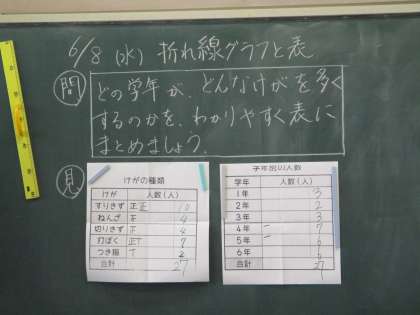 6/8 (水) 折れ線グラフと表
問
どの学年が、どんなけがを多く
するのかを、わかりやすく表に
まとめましょう。
見
けがの種類
けが 人数(人)
すりきず 正正 10
ねんざ 4
切りきず 4
打ぼく 正T 7
つき指 T 2
合計 27
学年別の人数
学年 人数(人)
1年 3
2年 3
3年 3
4年 7
5年
6年
合計 27